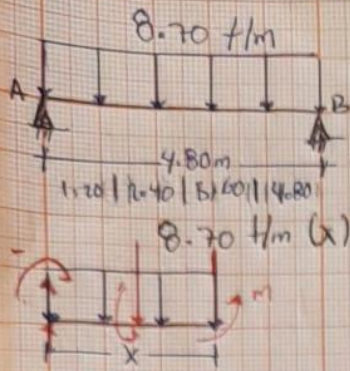 8.70 t/m
A
B
4.80m
1.20 | 2.40 | 3.60 | 4.80
8.70 t/m (x)
-
m
x